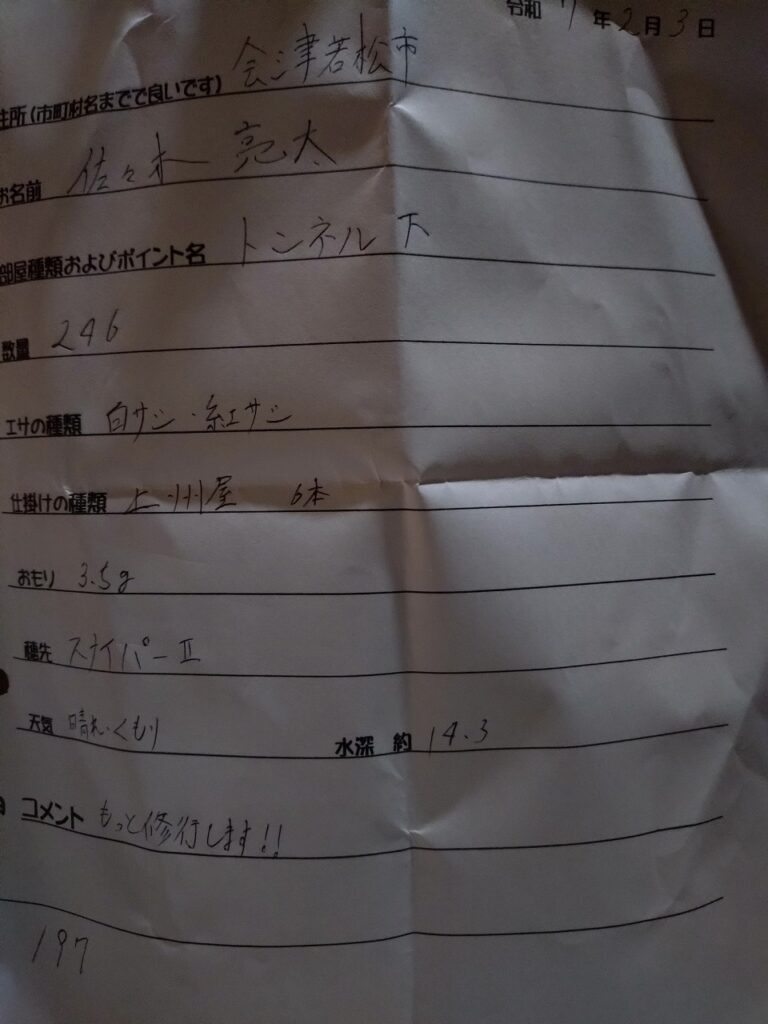 令和 7 年 2 月 3 日
住所(市町村名までで良いです) 会津若松市
お名前 佐々木 亮太
部屋種類およびポイント名 トンネル下
数量 246
エサの種類 白サシ・紅サシ
仕掛けの種類 上州屋 6本
おもり 3.5g
穂先 スナイパーⅡ
天気 晴れ、くもり 水深 約 14.3
コメント もっと修行します!!
197